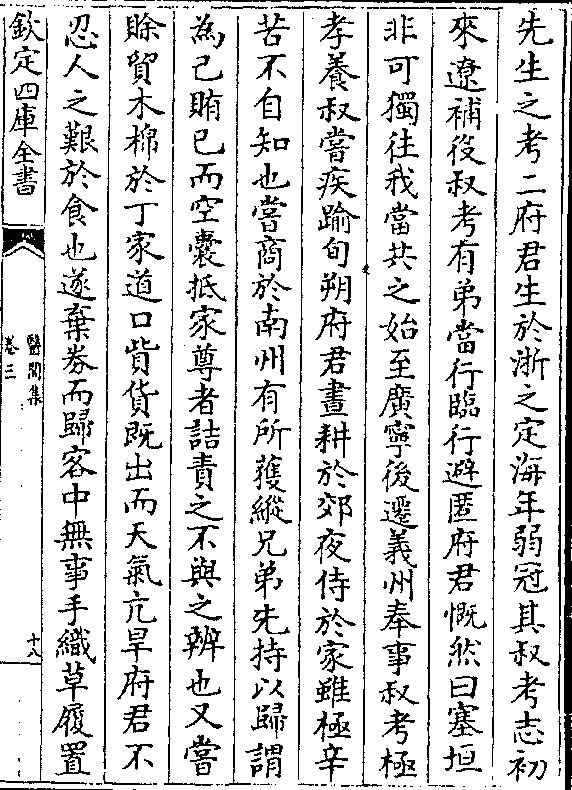 先生之考二府君生於浙之定海年弱冠其叔考志初
來遼補役叔考有弟當行臨行避匿府君慨然曰塞垣
非可獨往我當共之始至廣寧後遷義州奉事叔考極
孝養叔嘗疾踰旬朔府君晝耕於郊夜侍於家雖極辛
苦不自知也嘗商於南州有所獲縱兄弟先持以歸謂
為己賄已而空囊抵家尊者詰責之不與之辨也又嘗
賒貿木棉於丁家道口貲貨既出而天氣亢旱府君不
忍人之艱於食也遂棄券而歸客中無事手織草履置
欽定四庫全書
醫閭集
卷三
十八